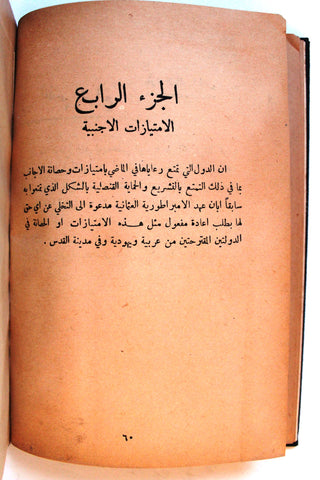 الجزء الرابع
الامتيازات الاجنبية
ان الدول التي تمتع رعاياها في الماضي بامتيازات وحصانة الاجانب
بما في ذلك التمتع بالتشريع والحماية القنصلية بالشكل الذي تمتعوا به
سابقاً ابان عهد الامبراطورية العثمانية مدعوة الى التخلي عن اي حق
لها بطلب اعادة مفعول مثل هذه الامتيازات او الحصانة في
الدولتين المقترحتين من عربية ويهودية وفي مدينة القدس .
٦٠